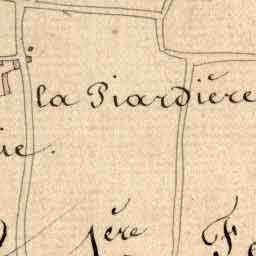 la Piardière
ie.
1ère F